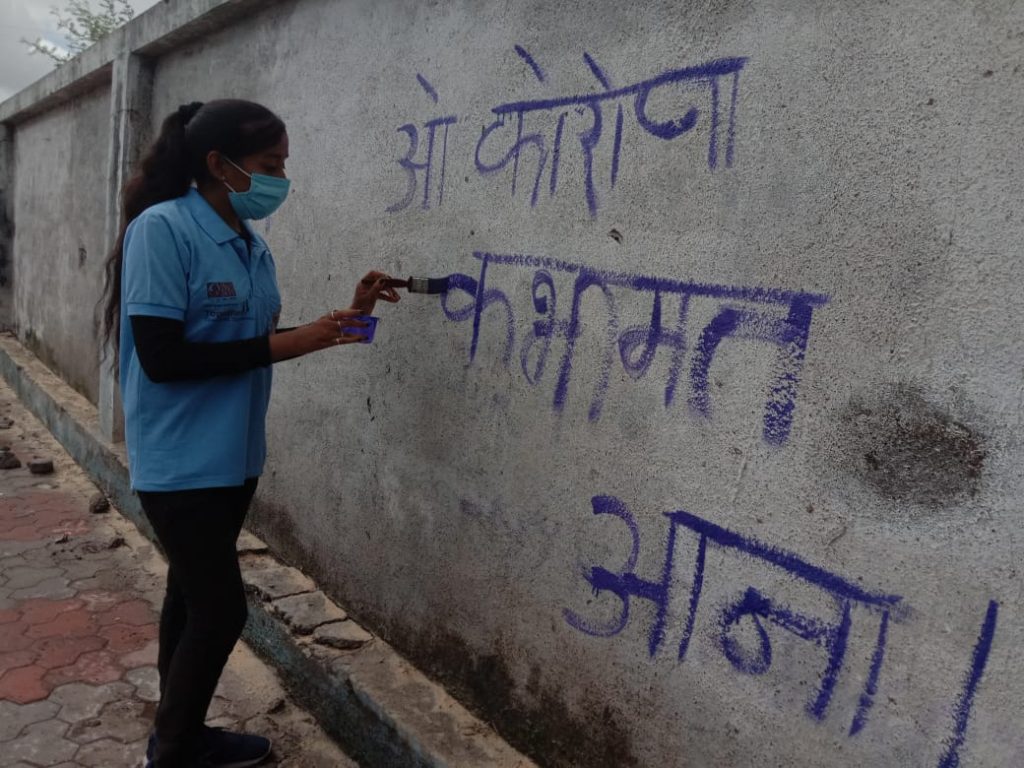 ओ कोरोणा
कभी मत
आना।